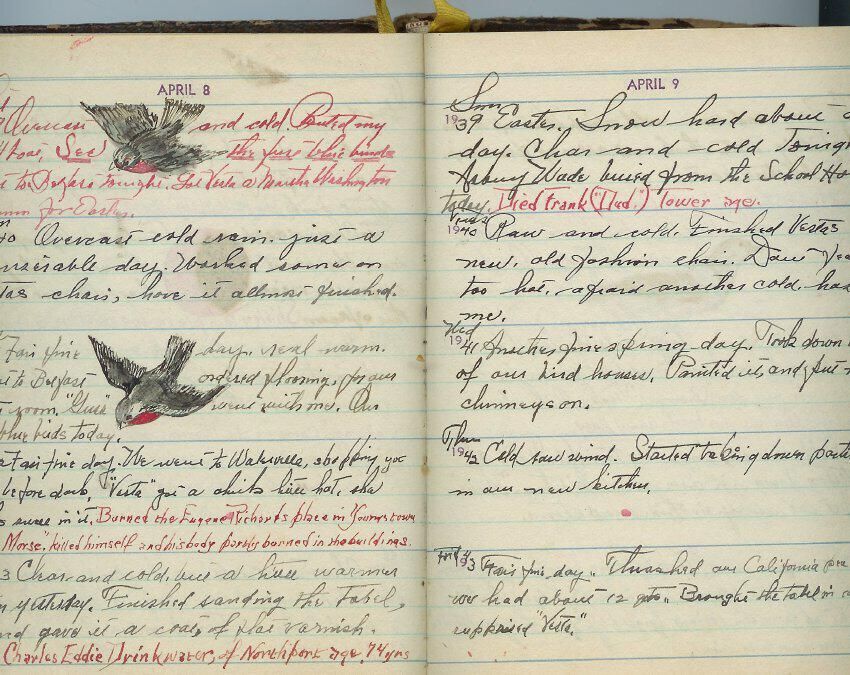 APRIL 8
Overcast and cold Painted my
boat, See the first blue birds
to Belfast tonight. Got Vesta a Martha Washington
for Easter.
40 Overcast cold rain. just a
miserable day. Worked some on
chair, have it allmost finished.
Fair fine day. real warm.
to Belfast ordered flooring, for our
room, went with me. Our
birds today.
Fair fine day. We went to Waterville, shopping got
before dark, "Vesta" got a hat, she
in it. Burned the Eugene Richards place in Youngstown
Morse" killed himself and his body partly burned in the buildings.
3 Clear and cold, but a little warmer
yesterday. Finished sanding the tabel,
and gave it a coat of flat varnish.
Charles Eddie Drinkwater, of Northport age. 74 yrs
APRIL 9
Sun
1939 Easter. Snow hard about
day. Clear and cold Tonight
Wade buried from the School
today. Died Frank ("Tud.") Tower age.
1940 Raw and cold. Finished Vestas
new, old fashion chair. Dave
too hot, afraid another cold, has
me.
Wed
1941 Another fine spring day. Took down
of our bird houses. Painted it and put
chimneys on.
Thur
1942 Cold raw wind. Started taking down
in our new kitchen.
1943 Fair fine day. Thrashed our California
we had about 12 qts. Brought the tabel in
supprised "Vesta."